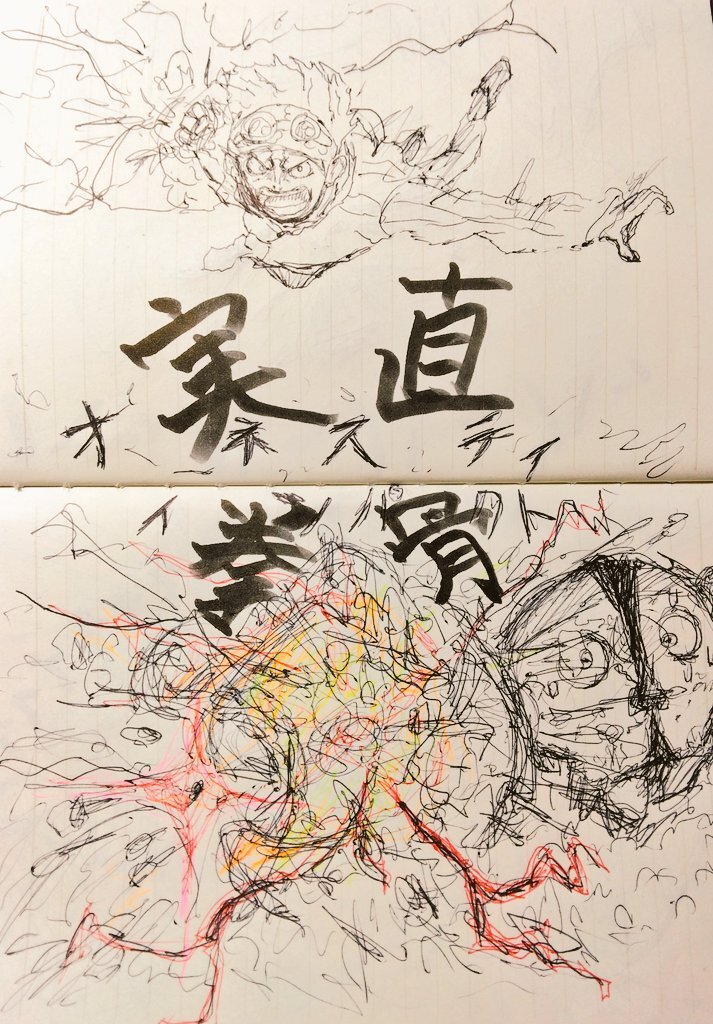 実直
オネスティ
インパクト
拳骨